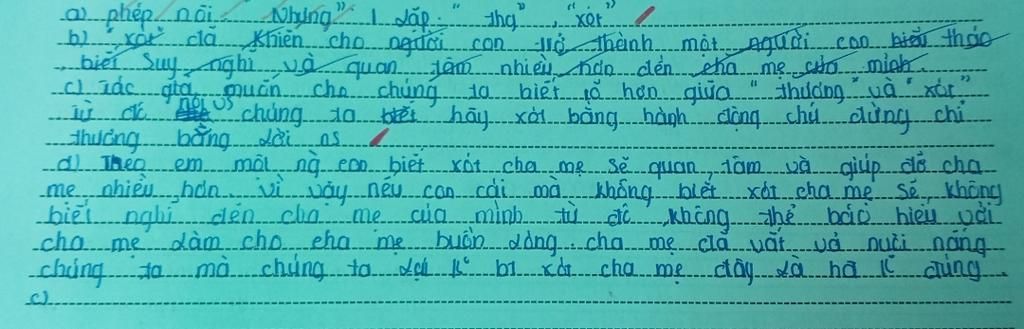 a) phép nối: "Nhưng", lặp: "thg", "xót"
b) "xót" đã khiến cho người con trở thành một người con hiểu thảo
, biết suy nghĩ và quan tâm nhiều hơn đến cha mẹ của mình
c) Tác giả muốn cho chúng ta biết rõ hơn giữa "thương" và "xót"
từ đó nói vs chúng ta biết hãy xót bằng hành động chứ đừng chỉ
thương bằng lời ns
d) Theo em một ng con biết xót cha mẹ sẽ quan tâm và giúp đỡ cha
mẹ nhiều hơn. vì vậy nếu con cái mà không biết xót cha mẹ sẽ không
biết nghĩ đến cha mẹ của mình từ đó không thể báo hiếu với
cha mẹ làm cho cha mẹ buồn lòng. cha mẹ đã vất vả nuôi nấng
chúng ta mà chúng ta lại k° bt xót cha mẹ đây là hđ k° đúng.
c)